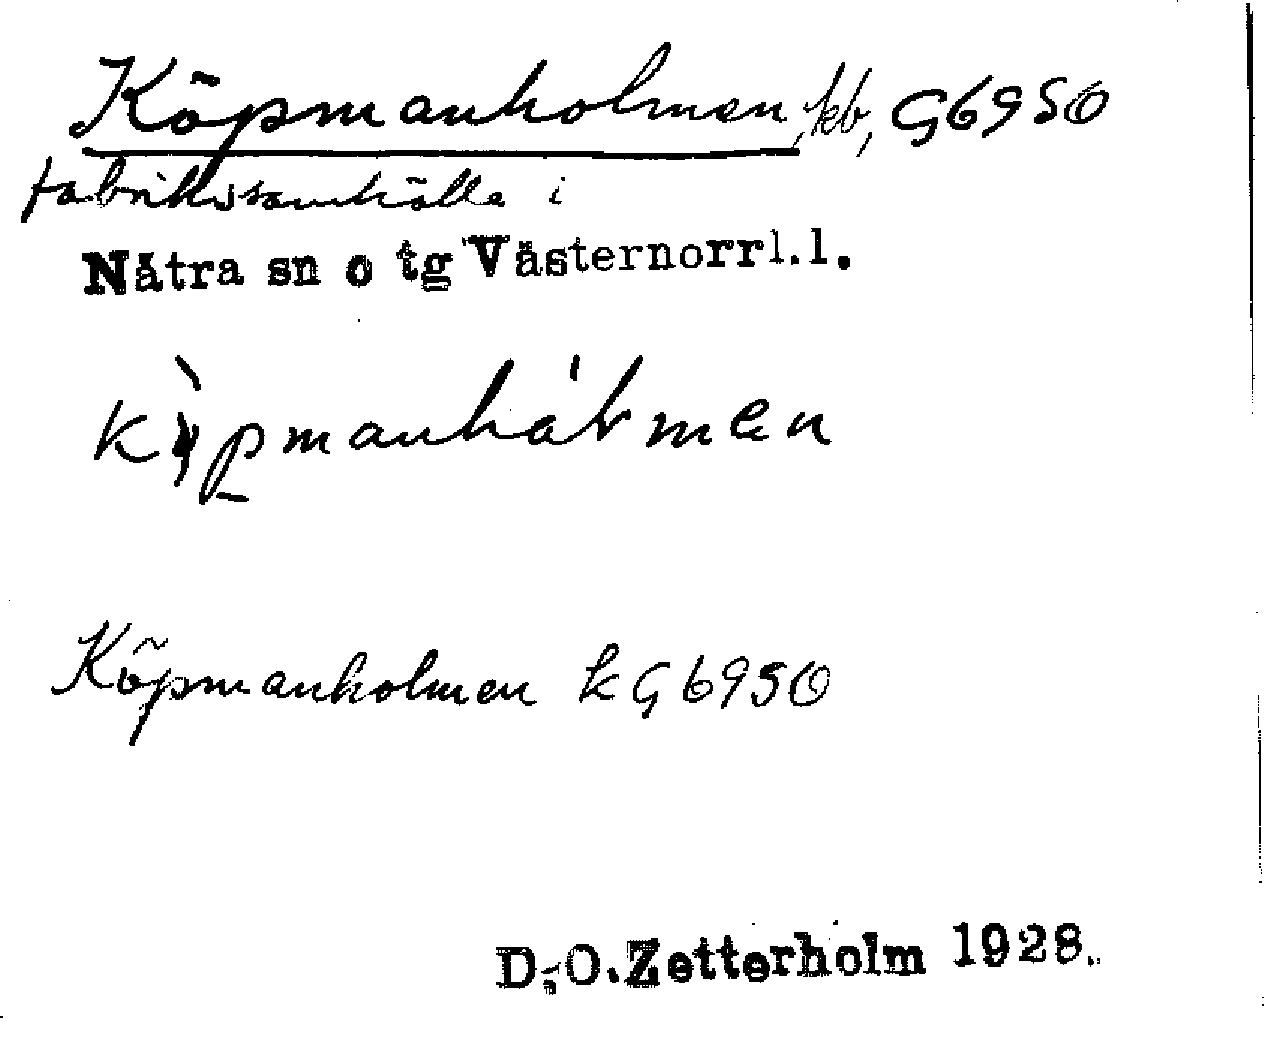 Köpmanholmen, kb, G6950
fabrikssamhälle i
Nätra sn o tg Västernorrl.l.
Köpmanholmen k G6950
D.O.Zetterholm 1928.